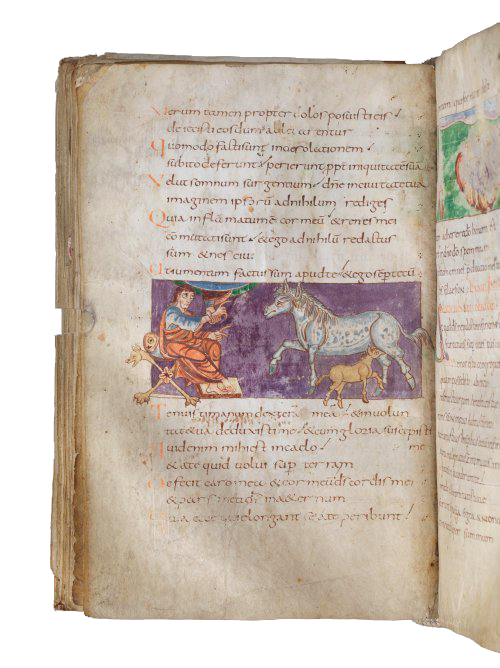 Verum tamen propter dolos posuisti eis /
deiecisti eos dum alleuarentur
Quomodo facti sunt in desolationem /
subito defecerunt / perierunt, ppt iniquitatē suā
Velut somnum surgentium / dn̄e in ciuitate tua
imaginem ipsorū ad nihilum rediges
Quia inflāmatum ē cor meū & renes mei
cōmutati sunt / & ego ad nihilū redactus
sum & nesciui
Ut iumentum factus sum apud te / & ego sēp tecū
Tenuisti manum dexterā meā / & in uolun
tate tua deduxisti me / & cum gloria suscepisti
Quid enim mihi est in caelo / me
& a te quid uolui sup terram
Defecit caro mea & cor meū ds cordis mei
& pars mea ds in aeternum
Quia ecce qui elongant se a te peribunt /